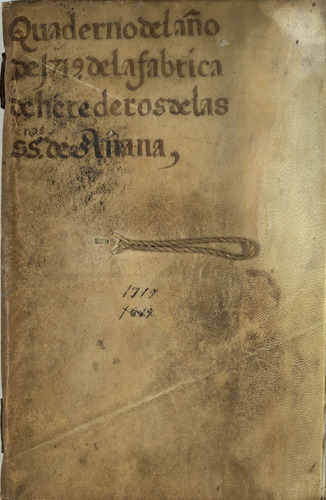 Quaderno del año
de 1719 de la fabrica
de herederos de las
nas
SS. de Añana,
1719